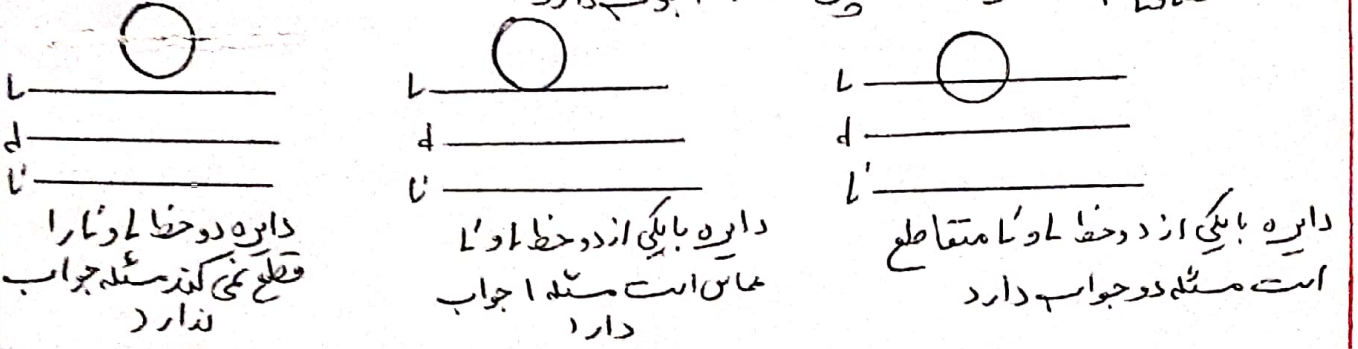 جواب دارد
L
d
L'
دایره با یکی از دو خط L و L' متقاطع
است مسئله دو جواب دارد
L
d
L'
دایره با یکی از دو خط L و L'
مماس است مسئله ۱ جواب
دارد
L
d
L'
دایره دو خط L و L' را
قطع نمی کند مسئله جواب
ندارد